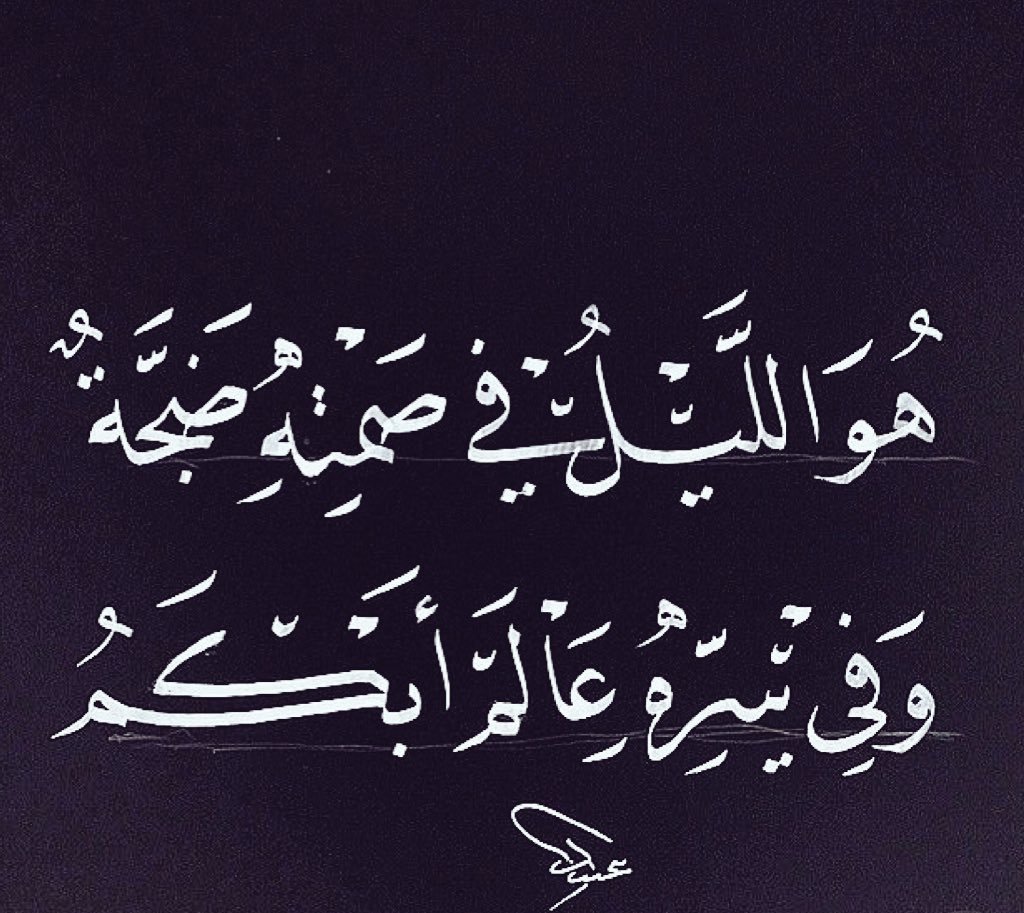 هُوَ اللَّيْلُ في صَمْتِهِ ضَجَّةٌ
وَفِي سِرِّهِ عَالَمَ أَبْكَمُ